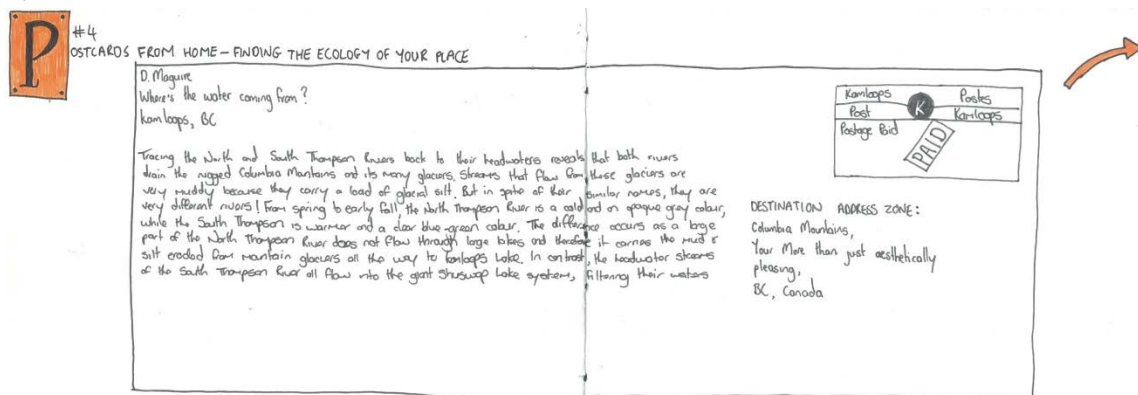 #4
POSTCARDS FROM HOME – FINDING THE ECOLOGY OF YOUR PLACE
D. Maguire
Where's the water coming from?
Kamloops, BC
Tracing the North and South Thompson Rivers back to their headwaters reveals that both rivers
drain the rugged Columbia Mountains and its many glaciers. Streams that flow from these glaciers are
very muddy because they carry a load of glacial silt. But in spite of their similar names, they are
very different rivers! From spring to early fall, the North Thompson River is a cold and an opaque grey colour,
while the South Thompson is warmer and a clear blue-green colour. The difference occurs as a large
part of the North Thompson River does not flow through large lakes and therefore it carries the mud &
silt eroded from mountain glaciers all the way to Kamloops Lake. In contrast, the headwater streams
of the South Thompson River all flow into the giant Shuswap Lake system, filtering their waters
Kamloops Postes
Post K Kamloops
Postage Paid
PAID
DESTINATION ADDRESS ZONE:
Columbia Mountains,
Your More than just aesthetically
pleasing,
BC, Canada